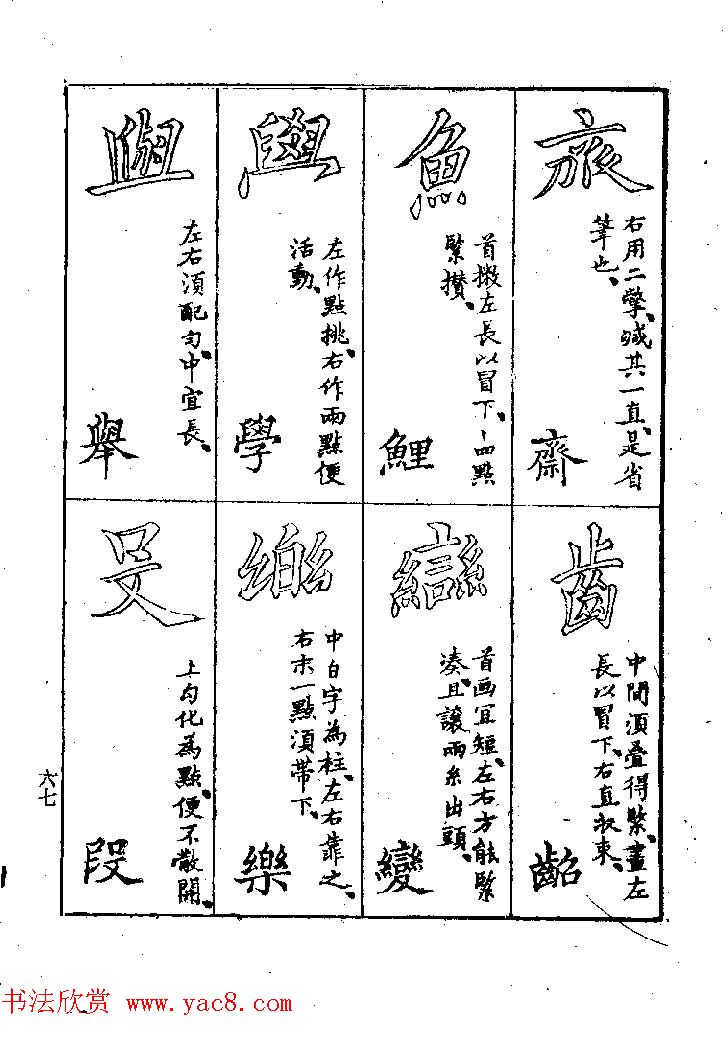 右用二撆、減其一直、是省
筆也、
齋
首撇左長以冒下、四點
緊攢、
鯉
左作點挑、右作兩點便
活動、
學
左右須配勻、中宜長、
舉
中間須叠得緊、畫左
長以冒下、右直收束、
齠
首画宜短、左右方能緊
凑、且讓兩糸出頭、
變
中白字為柱、左右靠之、
右末一點須帶下、
樂
上勾化為點、便不散開、
段
六七
书法欣赏 www.yac8.com